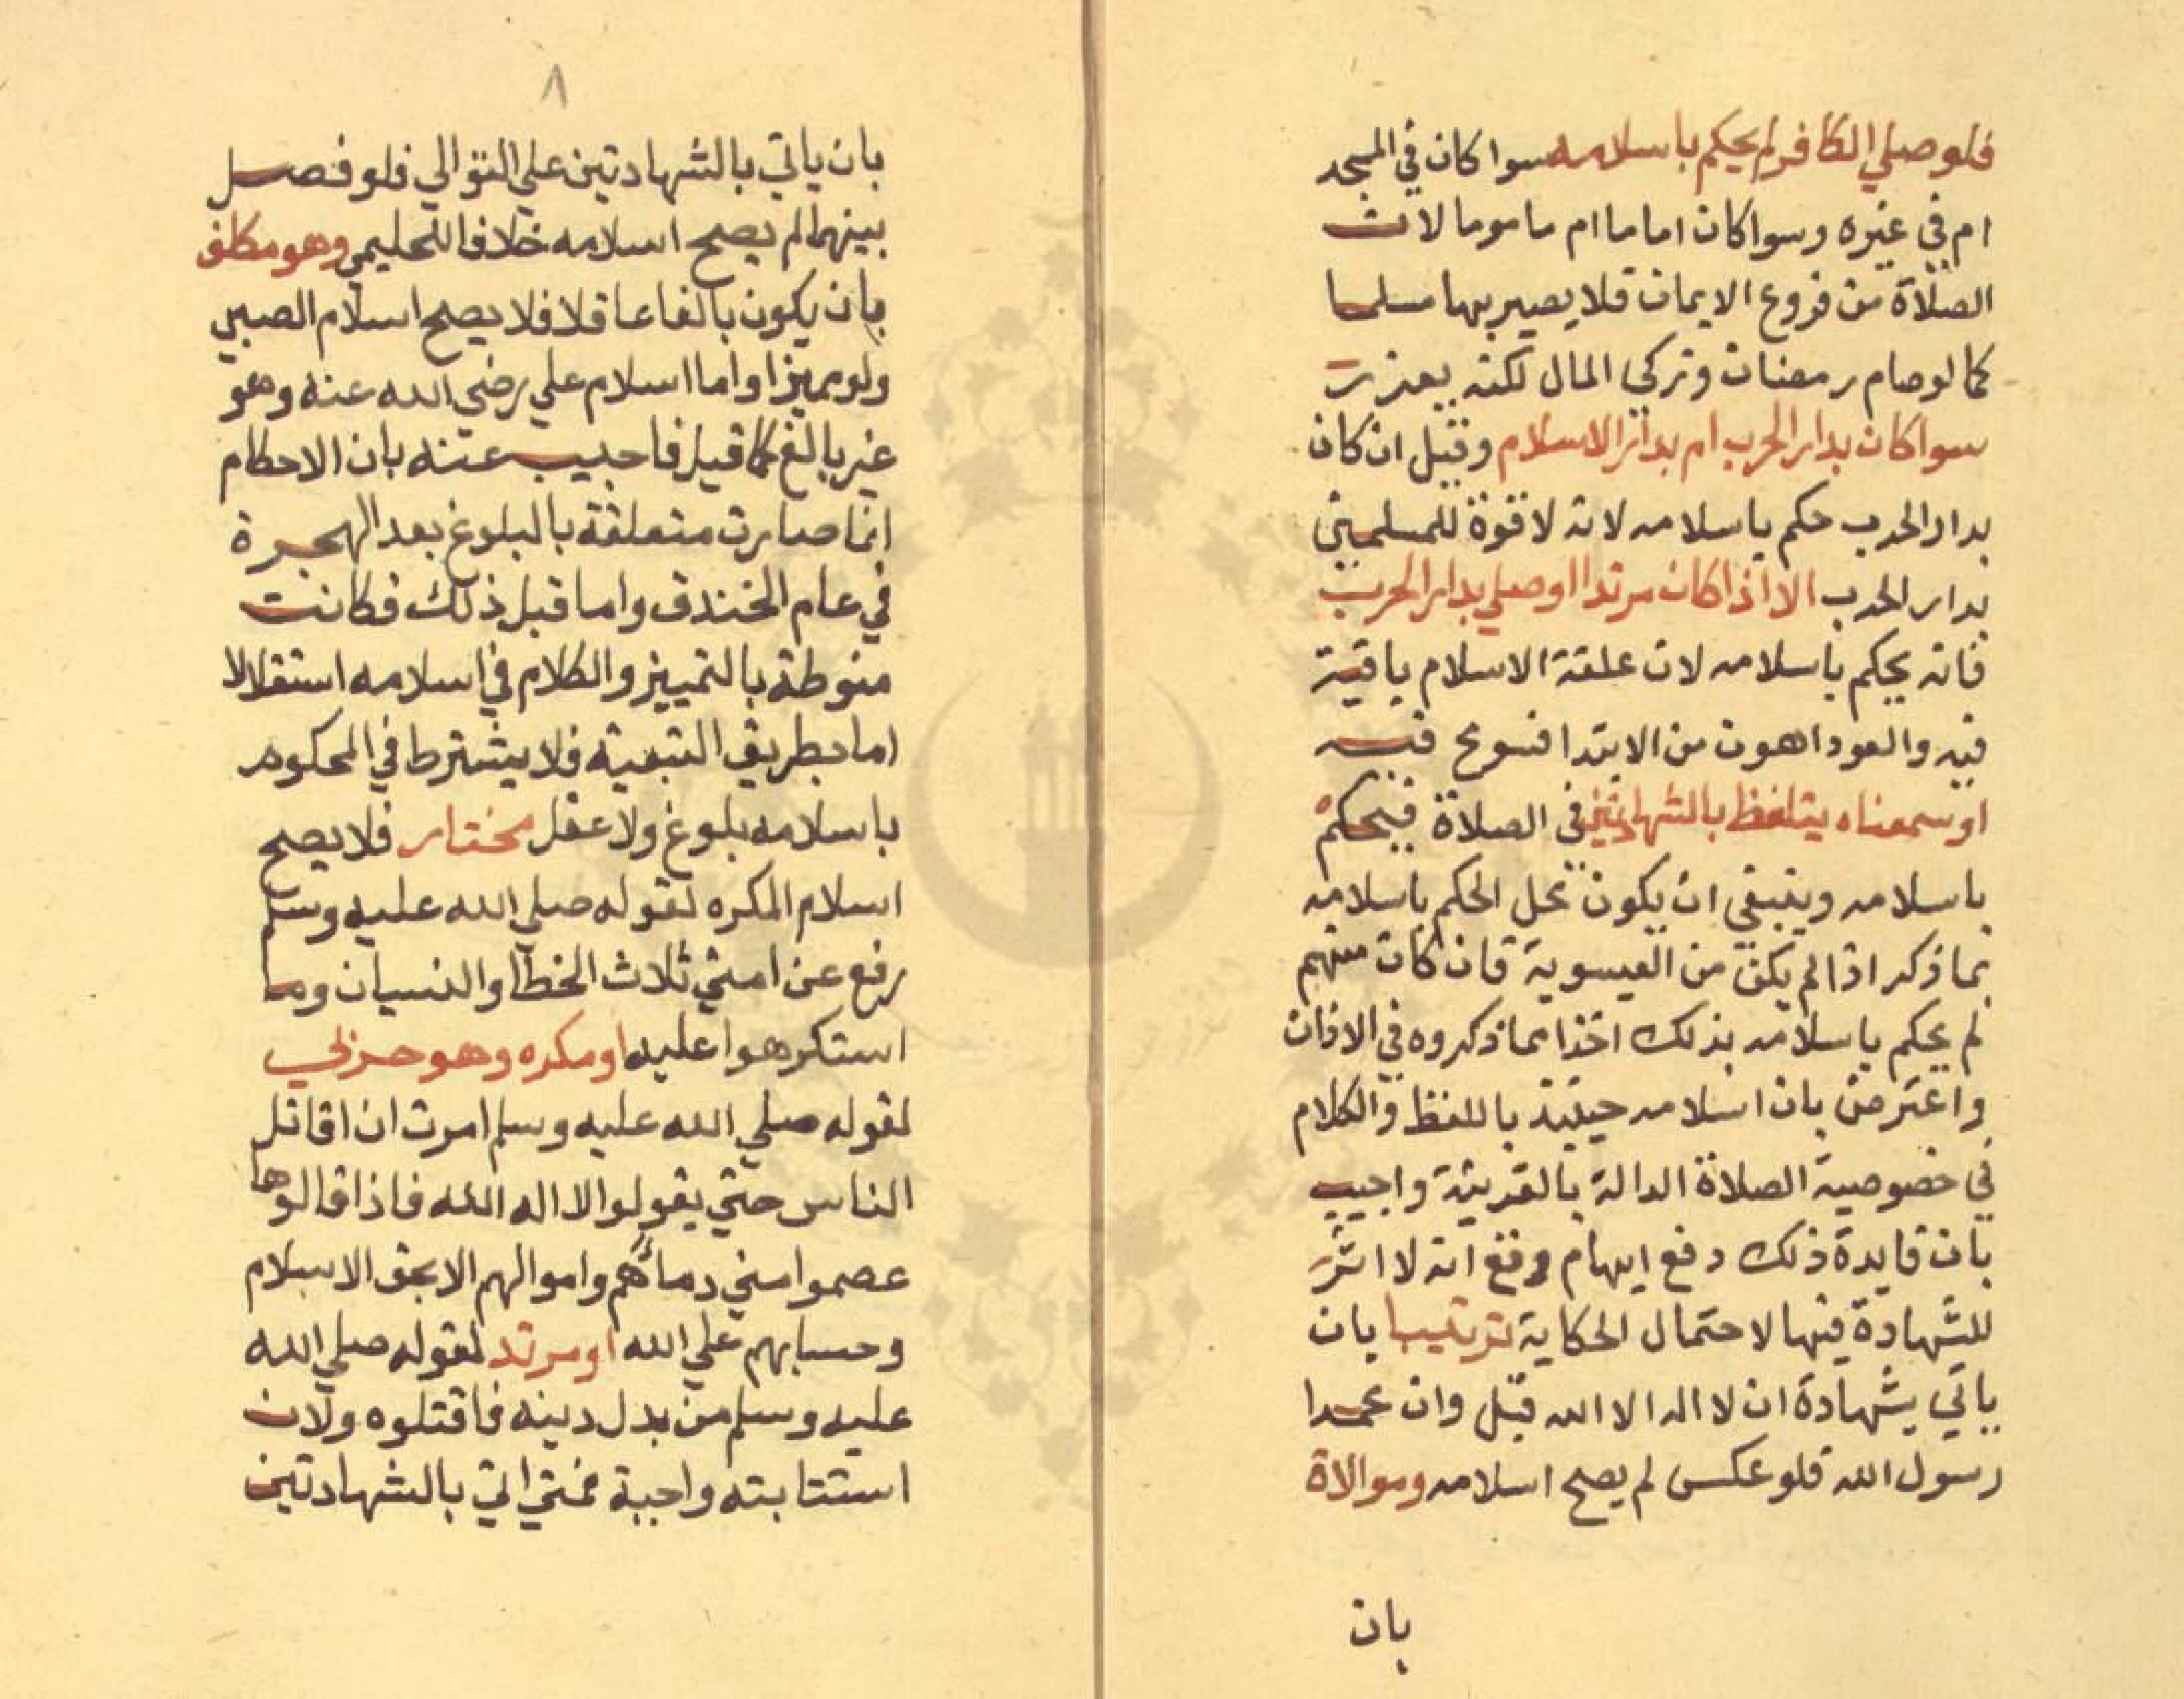 فلو صلي الكافر لم يحكم باسلامه سوا كان في المسجد
ام في غيره وسوا كان اماما ام ماموما لان
الصلاة من فروع الايمان فلا يصير بها مسلما
كما لو صام رمضان وتركي المال لكنه يعزر
سوا كان بدار الحرب ام بدار الاسلام وقيل ان كان
بدار الحرب حكم باسلامه لانه لا قوة للمسلمين
بدار الحرب الا اذا كان مرتدا او صلي بدار الحرب
فانه يحكم باسلامه لان علقة الاسلام باقية
فيه والعود اهون من الابتدا فسومح فيه
او سمعناه يتلفظ بالشهادتين في الصلاة فيحكم
باسلامه وينبغي ان يكون محل الحكم باسلامه
بما ذكر اذا لم يكن من العيسوية فان كان منهم
لم يحكم باسلامه بذلك اخذا مما ذكروه في الاذان
واعترض بان اسلامه حينيذ باللفظ والكلام
في خصوصية الصلاة الدالة بالقرينة واجيب
بان فايدة ذلك دفع ايهام انه لا اثر
للشهادة فيها لاحتمال الحكاية ترتيبا بان
ياتي بشهادة ان لا اله الا الله قبل وان محمدا
رسول الله فلو عكس لم يصح اسلامه وموالاة
بان
٨
بان ياتي بالشهادتين علي التوالي فلو فصل
بينهما لم يصح اسلامه خلافا للحليمي وهو مكلف
بان يكون بالغا عاقلا فلا يصح اسلام الصبي
ولو مميزا واما اسلام علي رضي الله عنه وهو
غير بالغ كما قيل فاجيب عنه بان الاحكام
انما صارت متعلقة بالبلوغ بعد الهجرة
في عام الخندق واما قبل ذلك فكانت
منوطة بالتمييز والكلام في اسلامه استقلالا
اما بطريق التبعية فلا يشترط في المحكوم
باسلامه بلوغ ولا عقل مختار فلا يصح
اسلام المكره لقوله صلي الله عليه وسلم
رفع عن امتي ثلاث الخطا والنسيان وما
استكرهوا عليه او مكره وهو حربي
لقوله صلي الله عليه وسلم امرت ان اقاتل
الناس حتي يقولوا لا اله الا الله فاذا قالوها
عصموا مني دماءهم واموالهم الا بحق الاسلام
وحسابهم علي الله او مرتد لقوله صلي الله
عليه وسلم من بدل دينه فاقتلوه ولان
استتابته واجبة فمتي اتي بالشهادتين